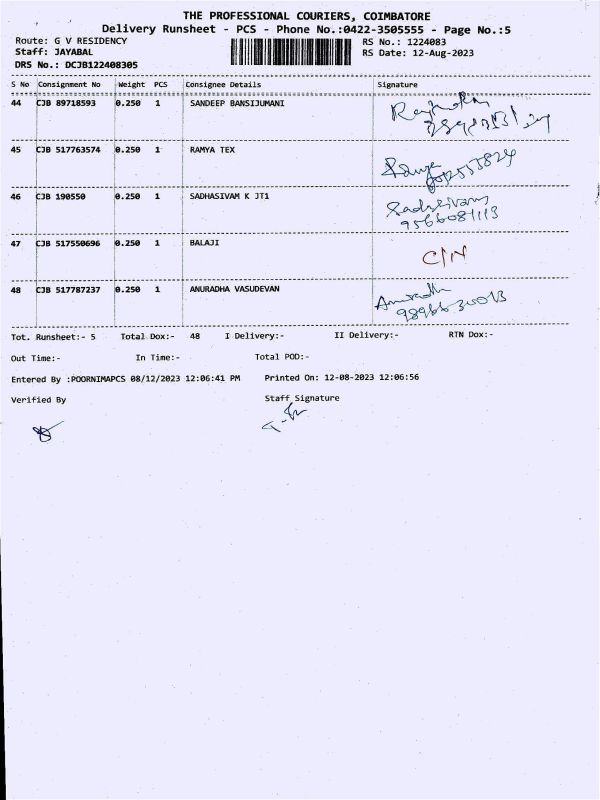 THE PROFESSIONAL COURIERS, COIMBATORE
Delivery Runsheet - PCS - Phone No.:0422-3505555 - Page No.:5
Route: G V RESIDENCY RS No.: 1224083
Staff: JAYABAL RS Date: 12-Aug-2023
DRS No.: DCJB122408305
S No Consignment No Weight PCS Consignee Details Signature
44 CJB 89718593 0.250 1 SANDEEP BANSIJUMANI
45 CJB 517763574 0.250 1 RAMYA TEX
46 CJB 190550 0.250 1 SADHASIVAM K JT1 Sadasivam
9566081113
47 CJB 517550696 0.250 1 BALAJI C/N
48 CJB 517787237 0.250 1 ANURADHA VASUDEVAN Anuradha
Tot. Runsheet:- 5 Total Dox:- 48 I Delivery:- II Delivery:- RTN Dox:-
Out Time:- In Time:- Total POD:-
Entered By :POORNIMAPCS 08/12/2023 12:06:41 PM Printed On: 12-08-2023 12:06:56
Verified By Staff Signature